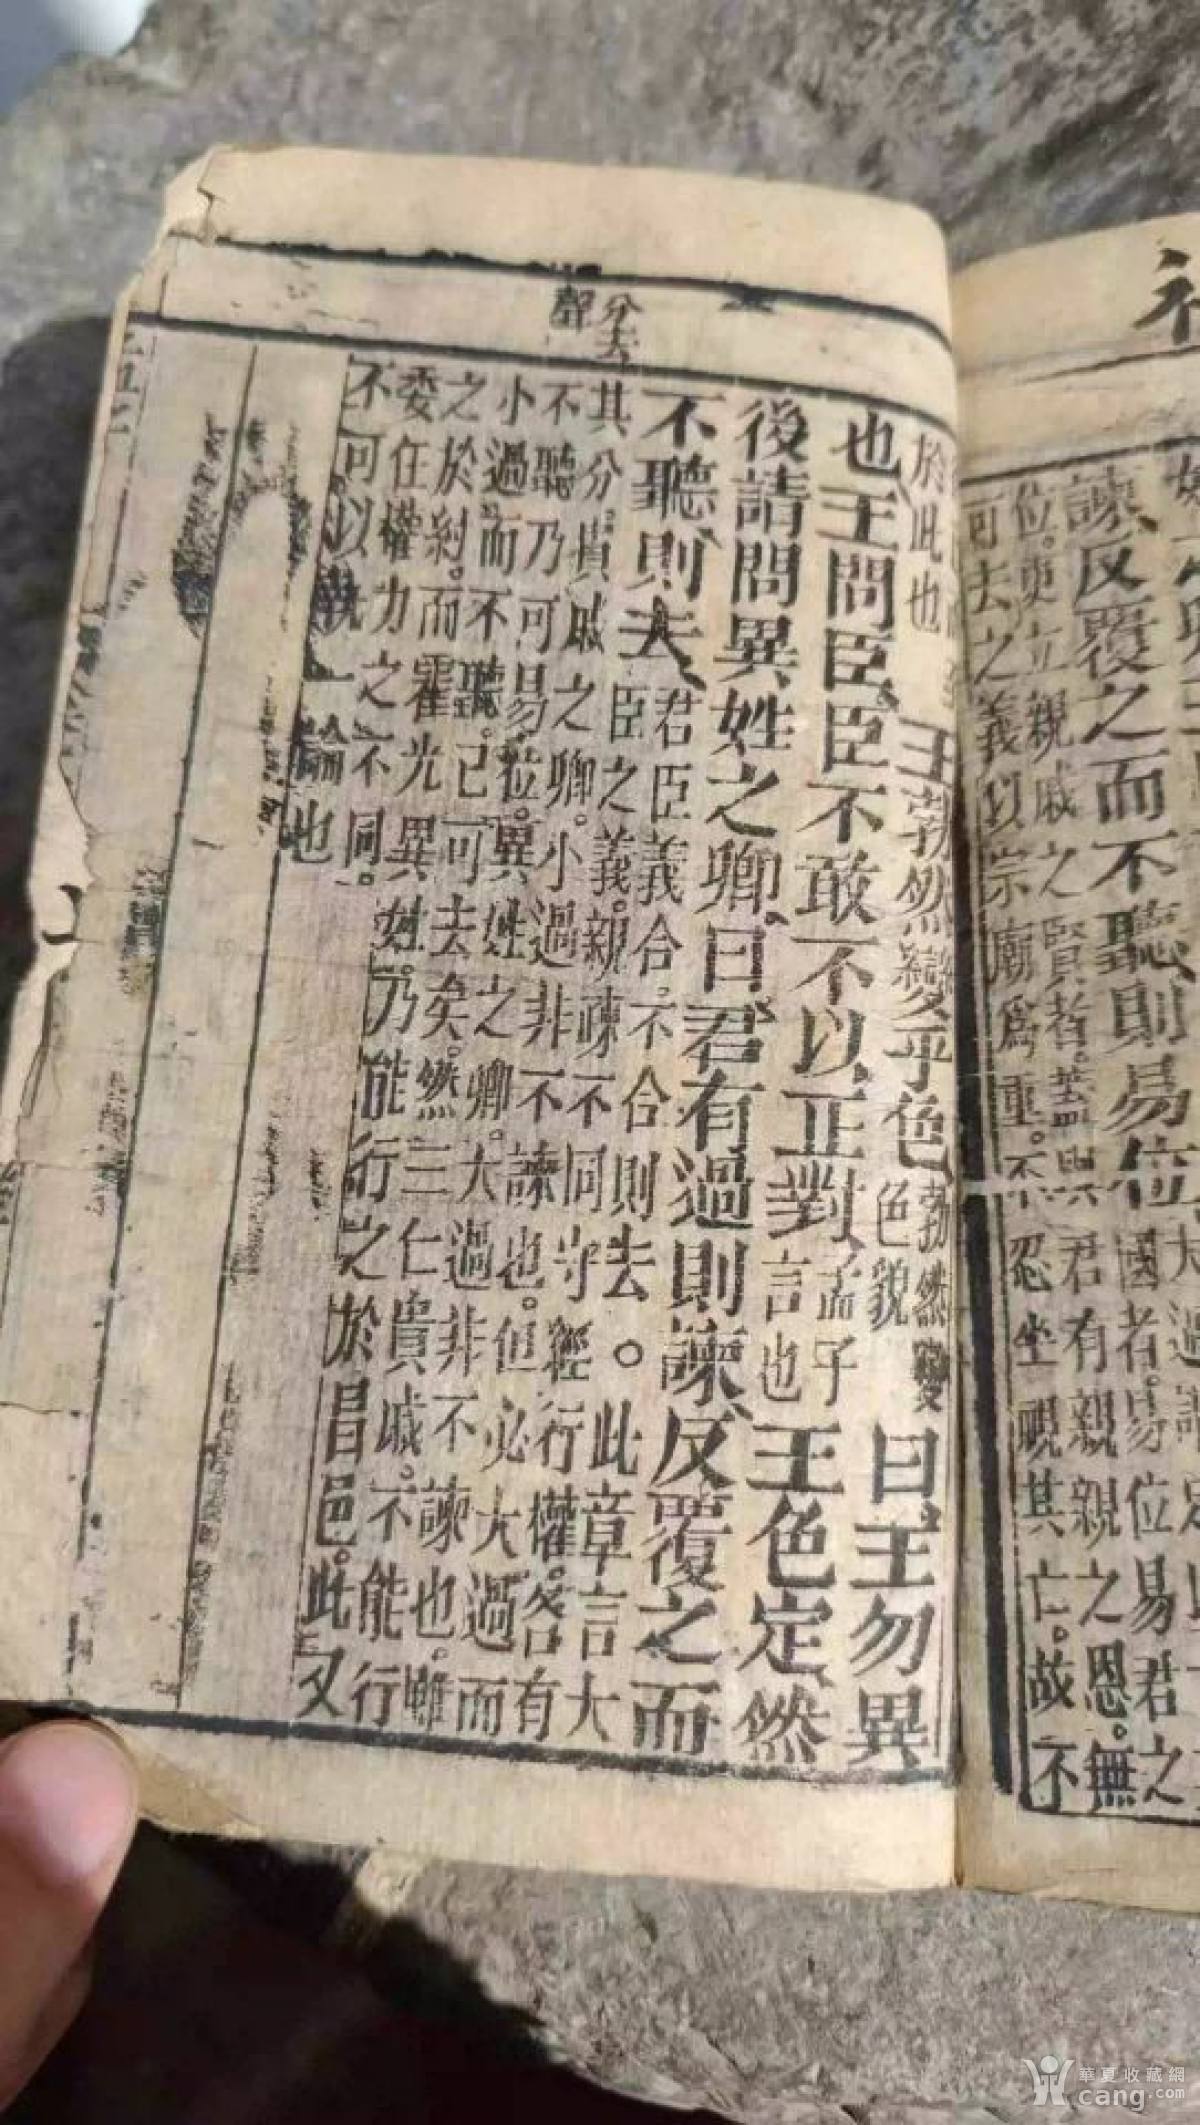 諫、反覆之而不聽則易位
國者。易位易君之
位。更立親戚之賢者。蓋與君有親親之恩。無
可去之義以宗廟爲重。不忍坐視其亡。故不
分去
聲
於此也 王勃然變乎色、勃然變
色貌 曰、王勿異
也、王問臣、臣不敢不以正對、孟子
言也 王色定、然
後請問異姓之卿、曰、君有過則諫、反覆之而
不聽、則去、君臣義合。不合則去。○此章言大
臣之義。親疎不同。守經行權。各有
其分。貴戚之卿。小過非不諫也。但必大過而
不聽乃可易位。異姓之卿。大過非不諫也。雖
小過而不聽。已可去矣。然三仁貴戚。不能行
之於紂。而霍光異姓。乃能行之於昌邑。此又
委任權力之不同。
不可以執一論也
華夏收藏網
cang.com